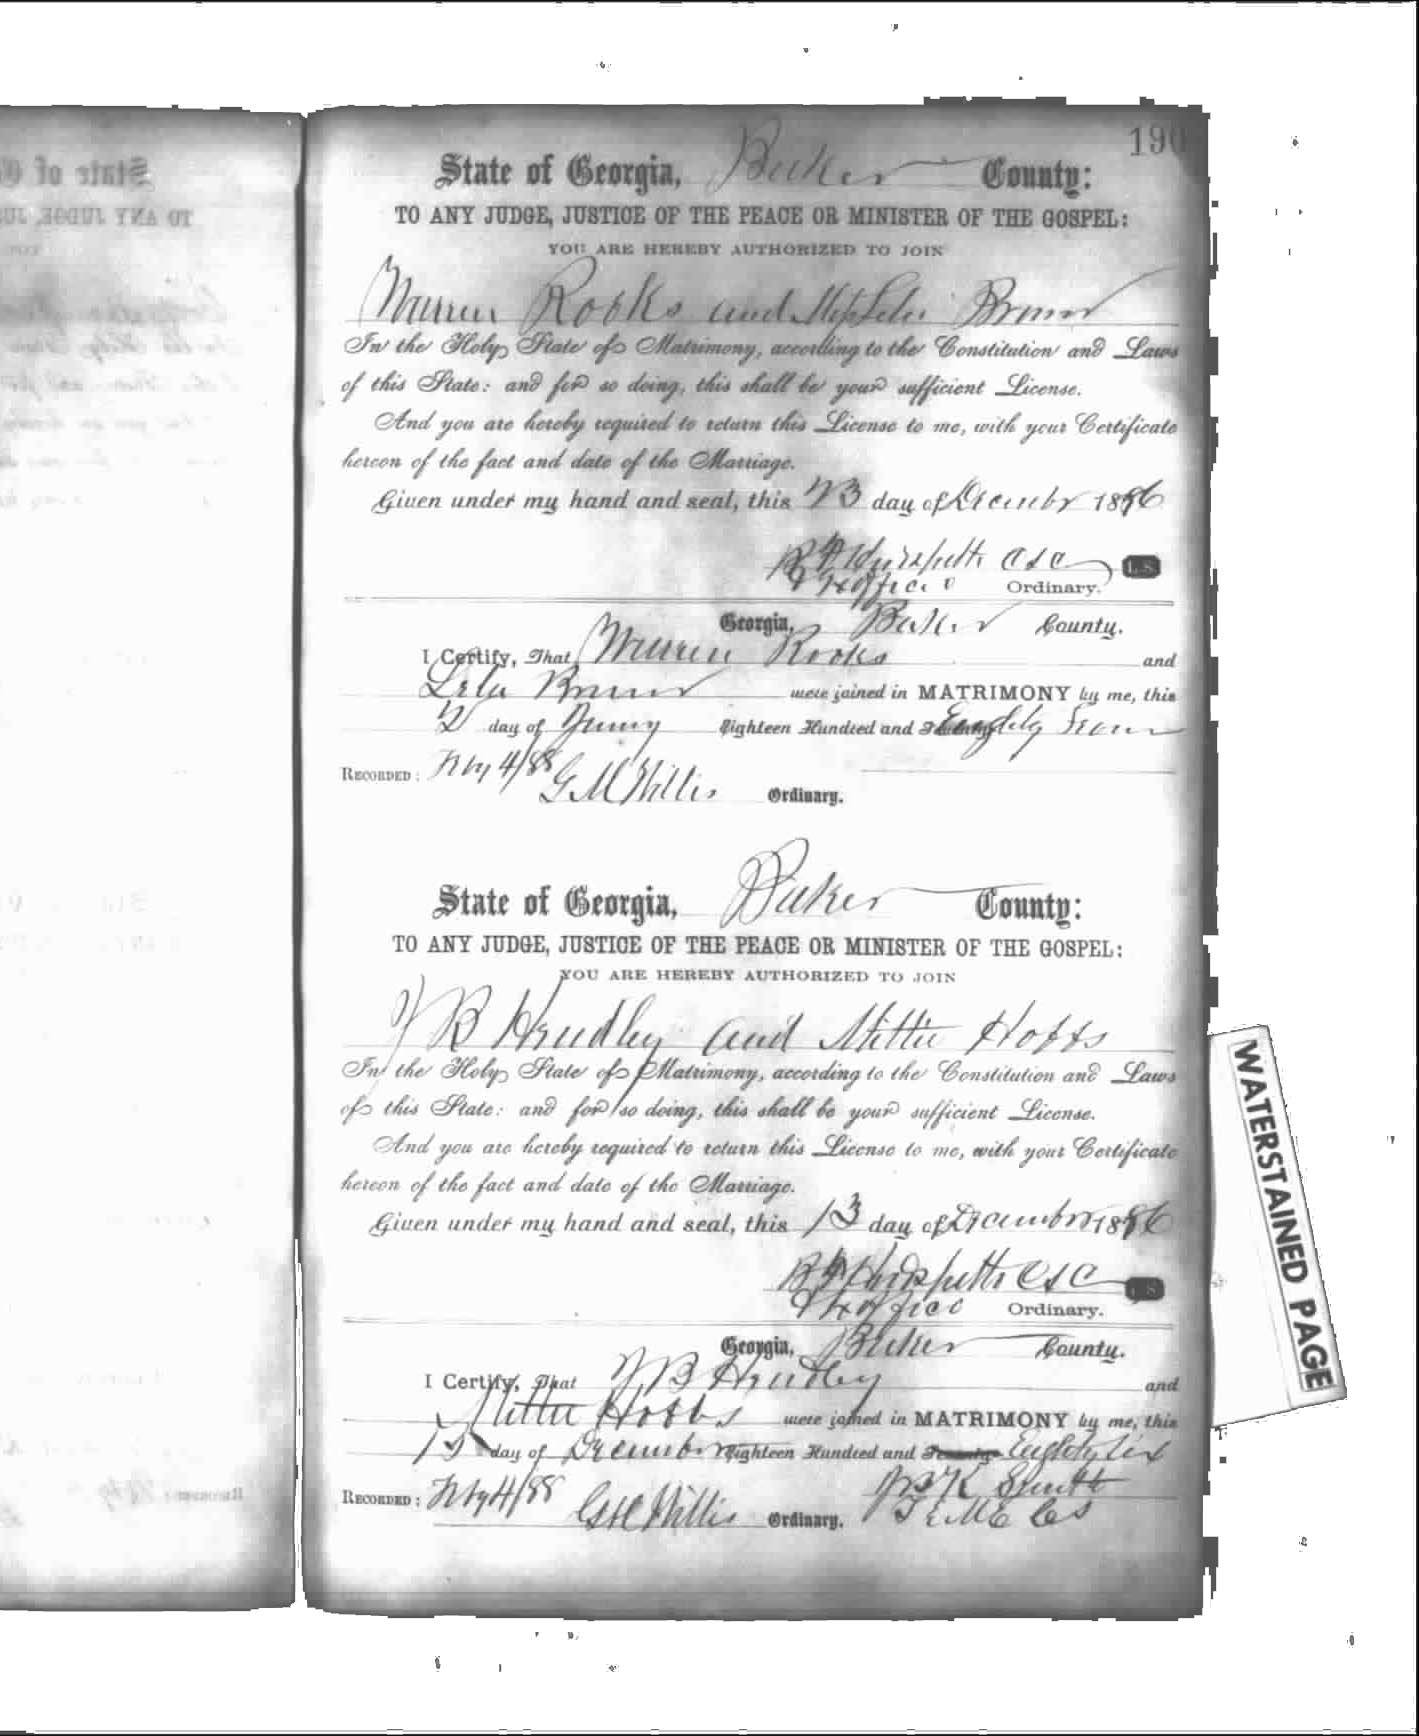 190
State of Georgia, Baker County:
TO ANY JUDGE, JUSTICE OF THE PEACE OR MINISTER OF THE GOSPEL:
YOU ARE HEREBY AUTHORIZED TO JOIN
Warren Rooks and Miss Lelia Brown
In the Holy State of Matrimony, according to the Constitution and Laws
of this State: and for so doing, this shall be your sufficient License.
And you are hereby required to return this License to me, with your Certificate
hereon of the fact and date of the Marriage.
Given under my hand and seal, this 23 day of December 1886
CSC L.S.
Exofficio Ordinary.
Georgia, Baker County.
I Certify, That Warren Rooks and
Lela Brown were joined in MATRIMONY by me, this
2 day of Eighteen Hundred and Eighty
RECORDED: Feby 4/88
G M Willis Ordinary.
State of Georgia, Baker County:
TO ANY JUDGE, JUSTICE OF THE PEACE OR MINISTER OF THE GOSPEL:
YOU ARE HEREBY AUTHORIZED TO JOIN
J B Hendley and Mittie Hobbs
In the Holy State of Matrimony, according to the Constitution and Laws
of this State: and for so doing, this shall be your sufficient License.
And you are hereby required to return this License to me, with your Certificate
hereon of the fact and date of the Marriage.
Given under my hand and seal, this 13 day of December 1886
CSC L.S.
Exofficio Ordinary.
Georgia, Baker County.
I Certify, That J B Hendley and
Mittie Hobbs were joined in MATRIMONY by me, this
15 day of December Eighteen Hundred and Eighty six
Smith
RECORDED: Feby 4/88 G M Willis Ordinary.
WATERSTAINED PAGE